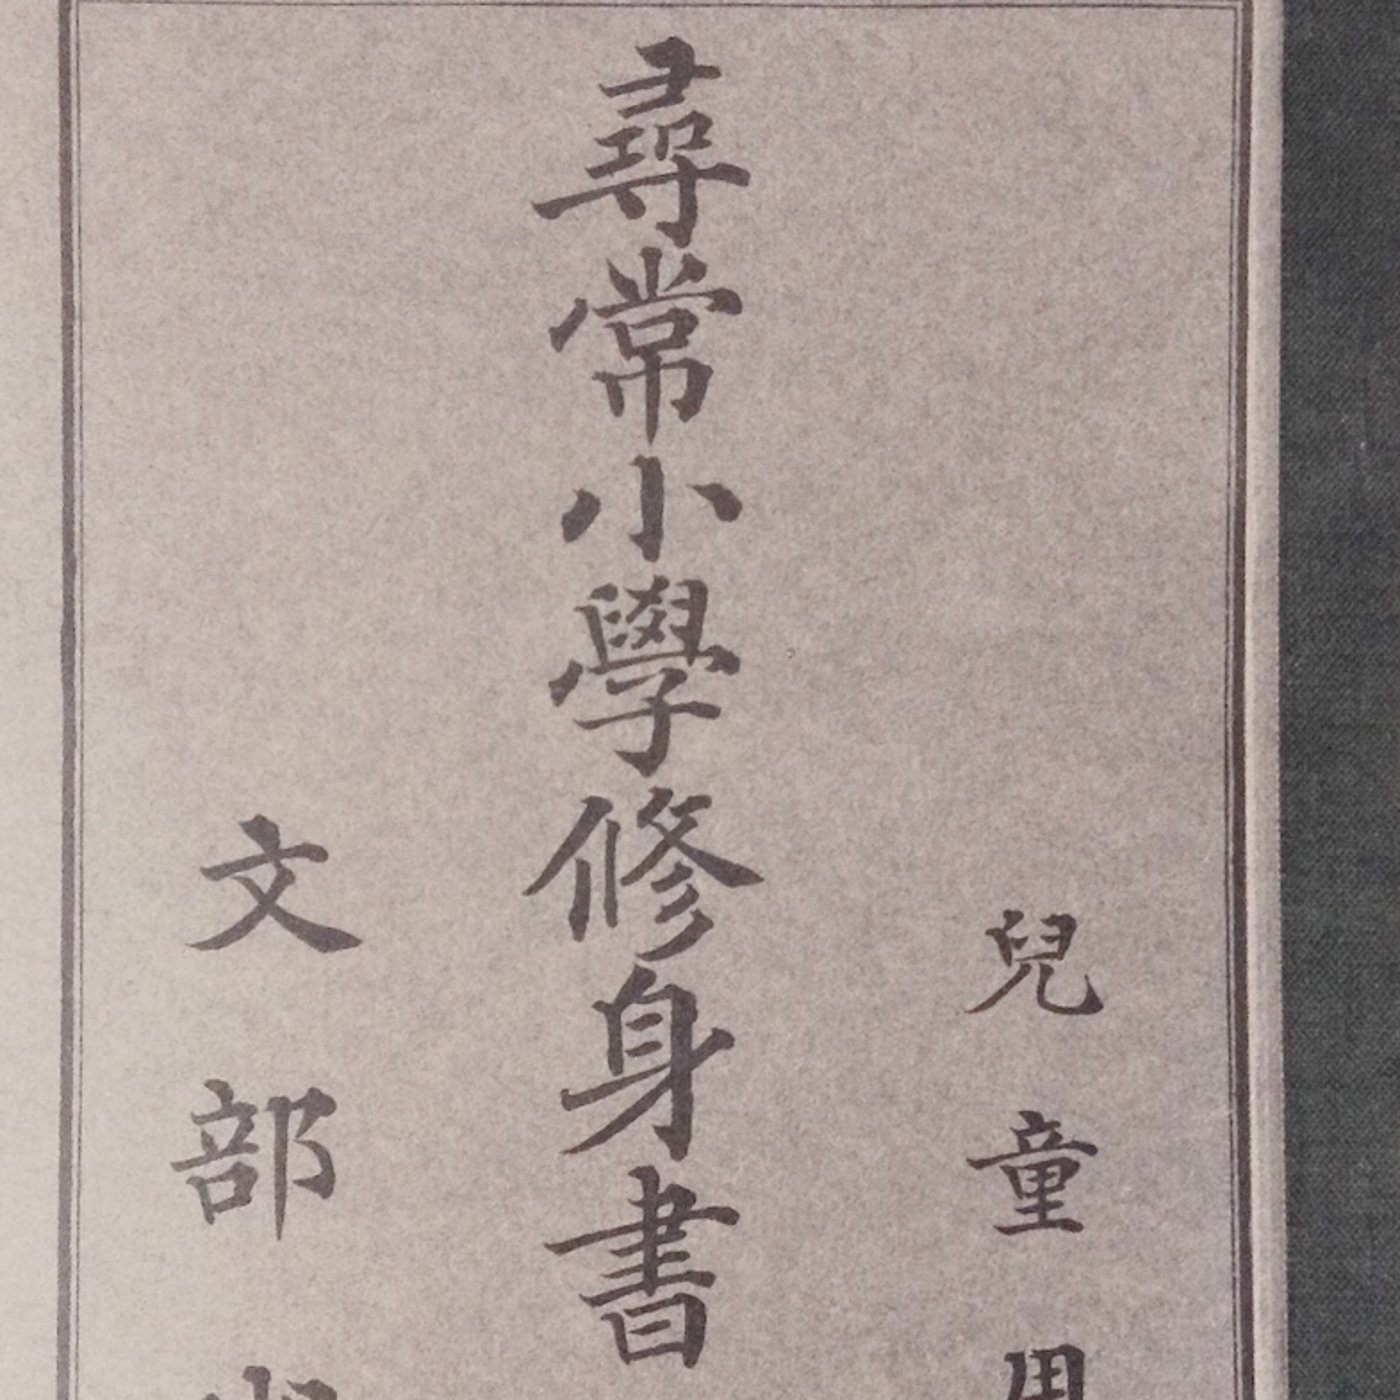 尋常小學修身書
兒童用
文部